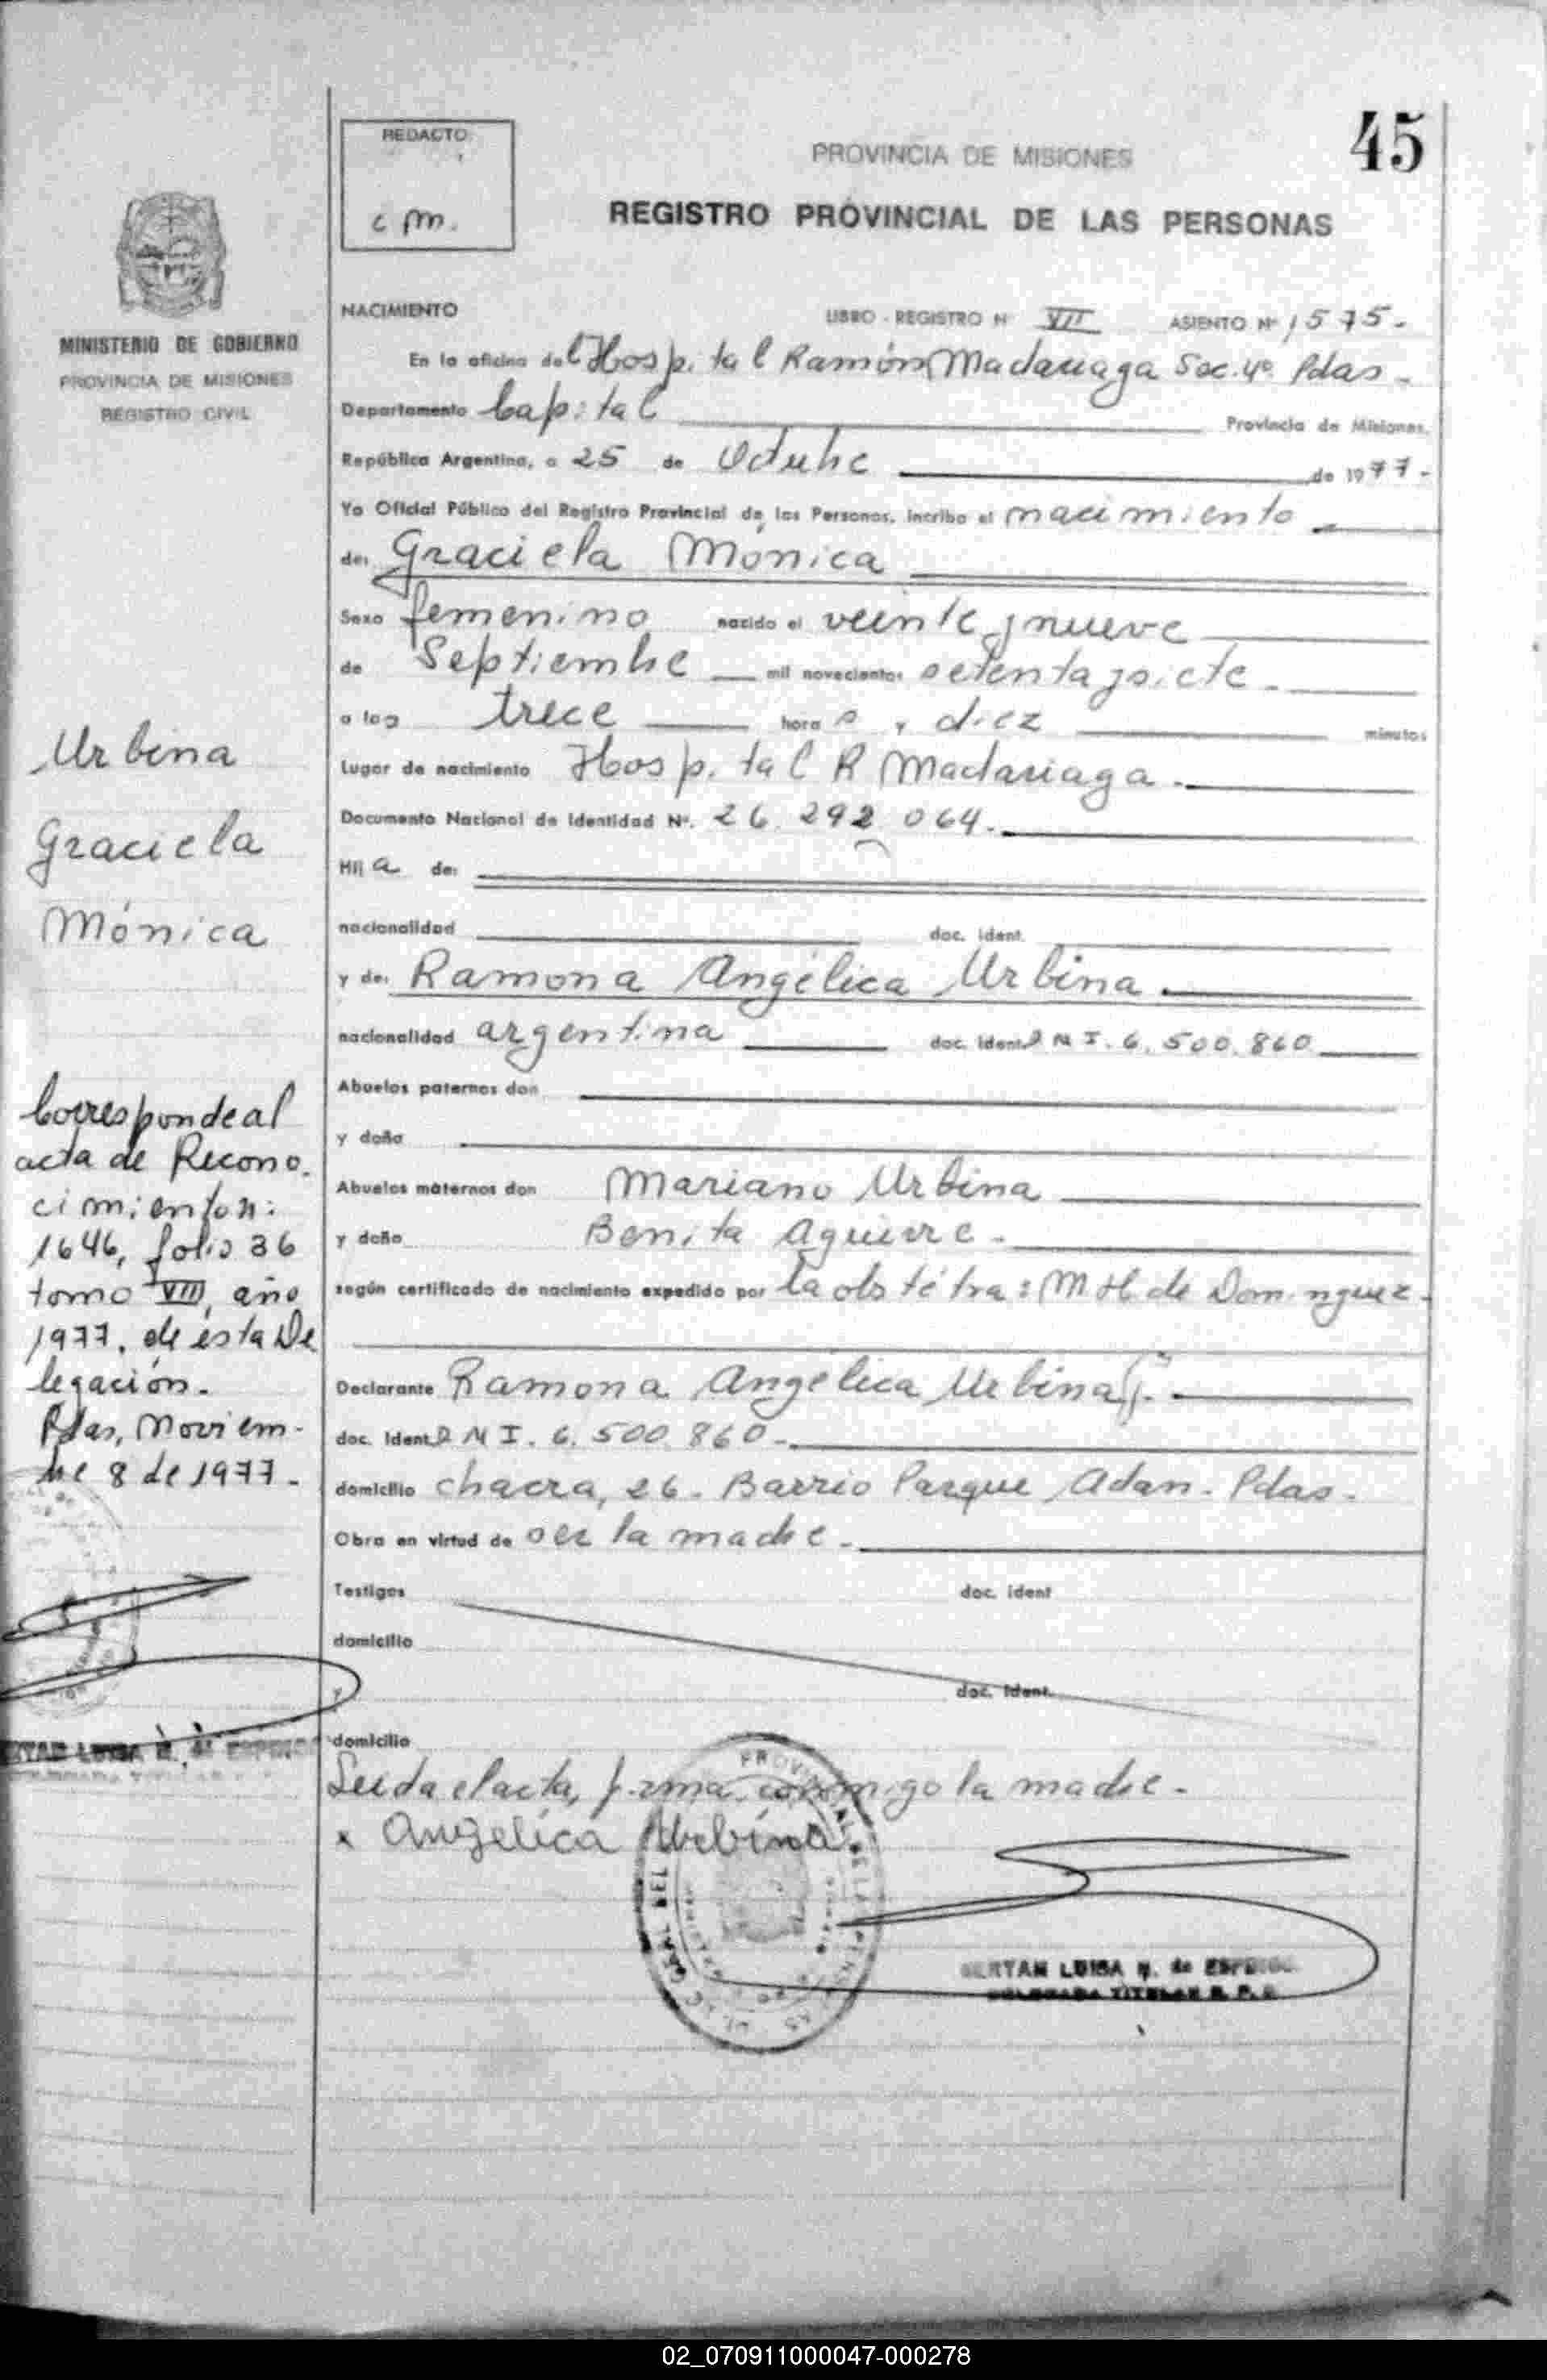 45
REDACTO
c m.
PROVINCIA DE MISIONES
REGISTRO PROVINCIAL DE LAS PERSONAS
MINISTERIO DE GOBIERNO
PROVINCIA DE MISIONES
REGISTRO CIVIL
NACIMIENTO LIBRO - REGISTRO Nº VII ASIENTO Nº 1575.-
En la oficina del Hospital Ramón Madariaga Sec. 4º. Pdas.-
Departamento Capital Provincia de Misiones.
República Argentina, a 25 de Octubre de 1977.-
Yo Oficial Público del Registro Provincial de las Personas, incribo el nacimiento
de: Graciela Mónica
Sexo femenino nacido el veinte y nueve
de Septiembre mil novecientos setenta y siete.-
a las trece hora s y diez minutos
Lugar de nacimiento Hospital R Madariaga.-
Documento Nacional de Identidad Nº. 26.292.064.-
Hij a de:
nacionalidad doc. ident.
y de: Ramona Angélica Urbina.
nacionalidad argentina doc. ident. D N I. 6.500.860
Abuelos paternos don
y doña
Abuelos maternos don Mariano Urbina
y doña Benita Aguirre.-
según certificado de nacimiento expedido por la obstétra: M H. de Dominguez.-
Declarante Ramona Angélica Urbina
doc. Ident. D N I. 6.500.860.-
domicilio chacra, 26.- Barrio Parque Adan.- Pdas.-
Obra en virtud de ser la madre.-
Testigos doc. ident
domicilio
y doc. ident.
domicilio
Leida el acta, firma conmigo la madre.-
x Angelica Urbina
LUISA M. de
Urbina
Graciela
Mónica
Corresponde al
acta de Recono.
cimiento n:
1646, folio 36
tomo VIII, año
1977, de ésta De
legación.-
Pdas, Noviem-
bre 8 de 1977.-
LUISA M. de
02_070911000047-000278